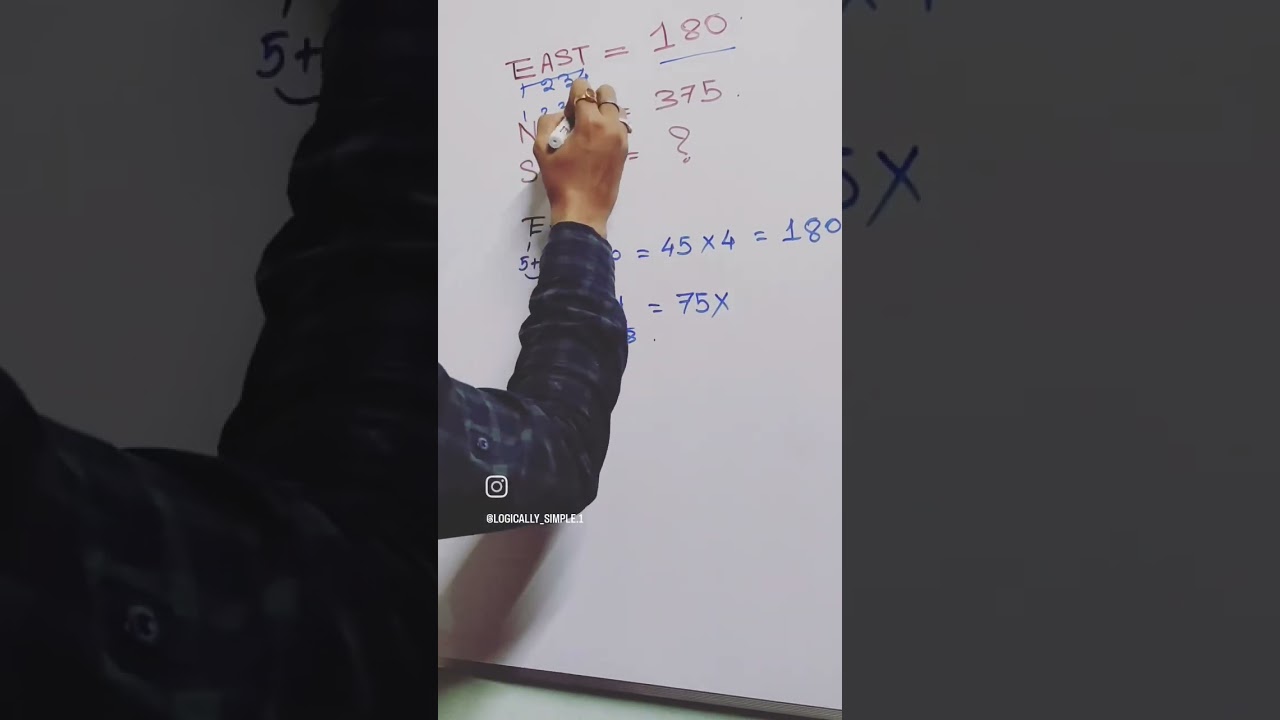 EAST = 180
1 2 3 4
1 2 3 = 375
N
S = ?
E
5+ = 45 × 4 = 180
= 75 ×
@LOGICALLY_SIMPLE.1
5+
5×